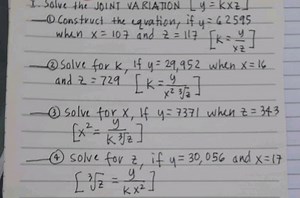 I. Solve the JOINT VARIATION [y = kxz]
① Construct the equation, if y = 62595
when x = 107 and z = 117 [k = y/xz]
② Solve for k, if y = 29,952 when x = 16
and z = 729 [k = y/x² ∛z]
③ Solve for x, if y = 7371 when z = 343
[x² = y/k ∛z]
④ Solve for z, if y = 30,056 and x = 17
[∛z = y/kx²]